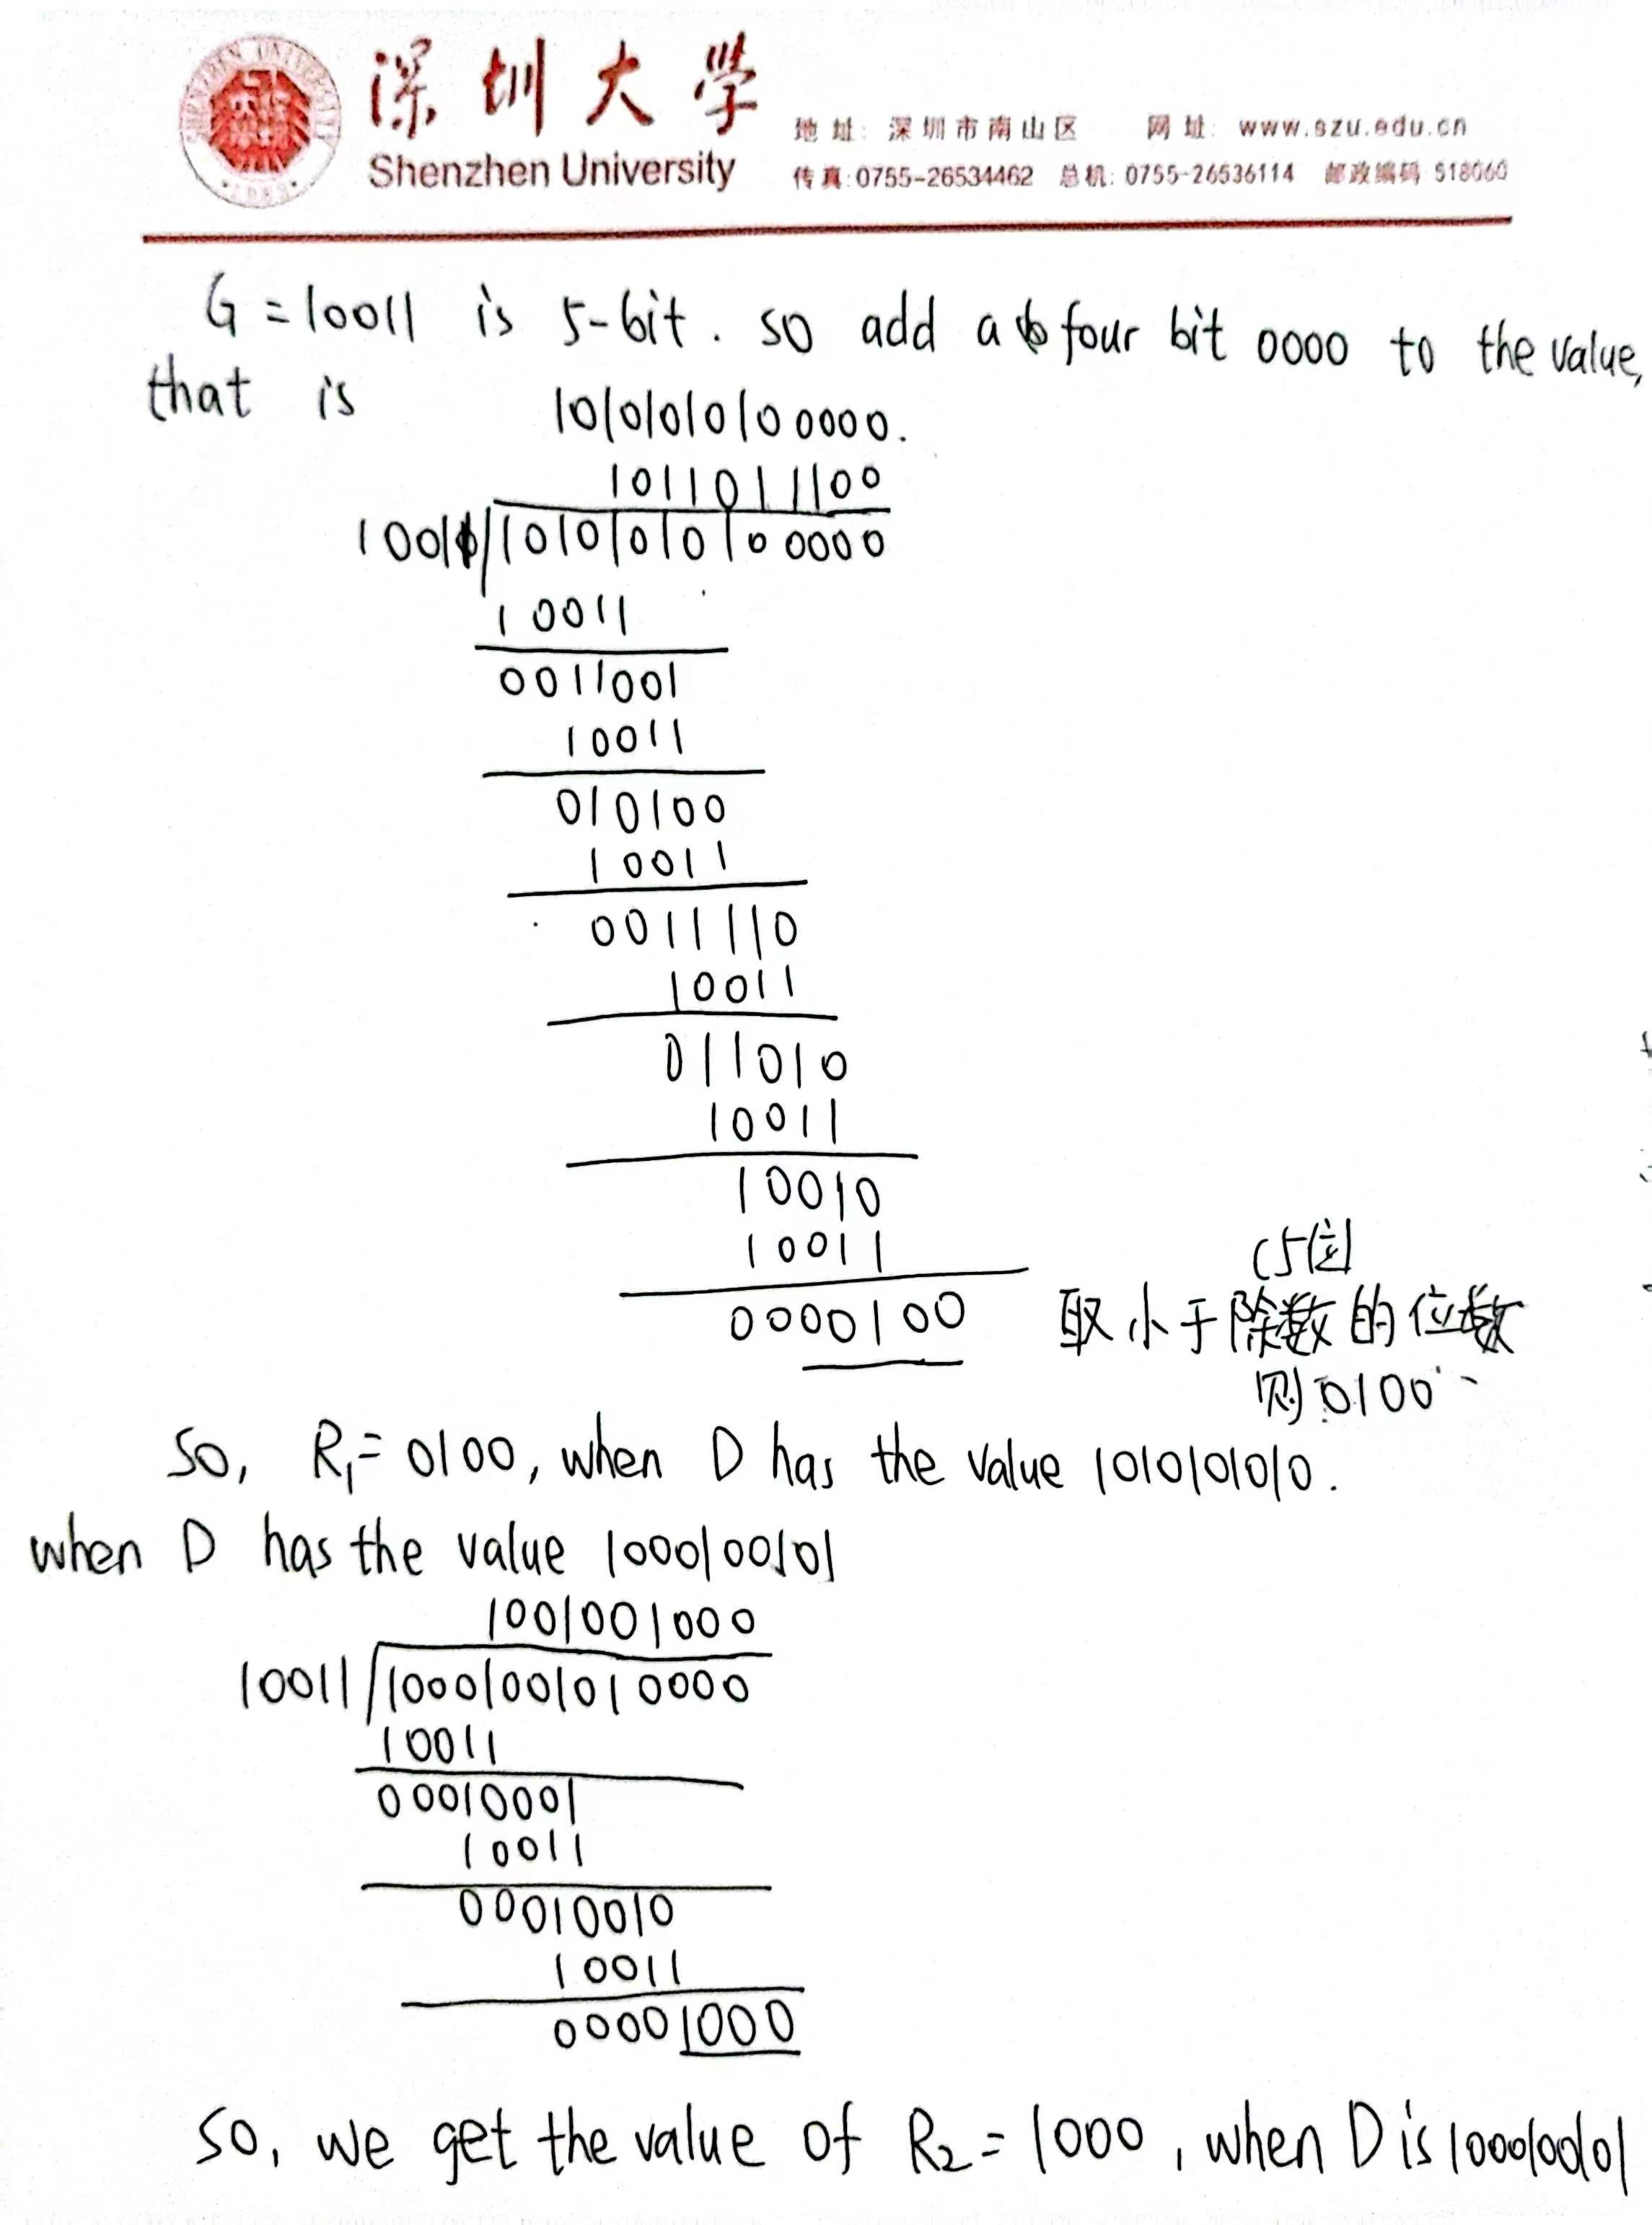 深圳大学
Shenzhen University
地址: 深圳市南山区 网址: www.szu.edu.cn
传真:0755-26534462 总机: 0755-26536114 邮政编码 518060
G=10011 is 5-bit. so add a four bit 0000 to the value,
that is 10101010100000.
1011011100
10011 10101010100000
10011
0011001
10011
010100
10011
0011110
10011
011010
10011
10010
10011
0000100
(5位)
取小于除数的位数
则0100
So, R₁=0100, when D has the value 1010101010.
when D has the value 1000100101
1001001000
10011 10001001010000
10011
00010001
10011
00010010
10011
00001000
So, we get the value of R₂=1000, when D is 1000100101